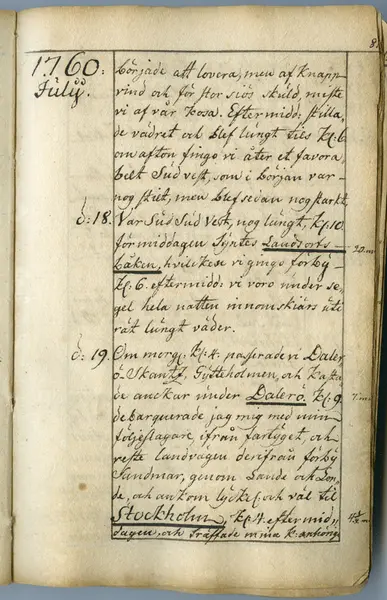 8
1760.
Julÿ.
började att lovera, men af knapp
vind och för stor siös skuld, miste
vi af vår kosa. Eftermidd: stilla,
de vädret och blef lungt tils kl. 6
om afton fingo vi åter et favora
belt Sud vest, som i början var
nog stilt, men blef sedan nog starkt,
d: 18. Var Sud Sud Vest, nog lungt, kl. 10.
förmiddagen syntes Landsorts
Båken, hvilcken vi gingo förbÿ
20: m
kl. 6. eftermidd: vi voro under se,
gel hela natten innomskiärs uti
rät lungt väder.
d: 19. Om morg: kl: 4. passerade vi Daler
ö-Skantz, Gÿtteholmen, och kasta
de anckar under Dalerö. kl. 9.
7: m
debarquerade jag mig med min
följeslagare, ifrån fartÿget, och
reste landvägen derifrån förbÿ
Sandmar, genom Lande och
de, och ankom lÿckl: och väl til
Stockholm, kl. 4. eftermid,
dagen, och träffade mina k: anhörig